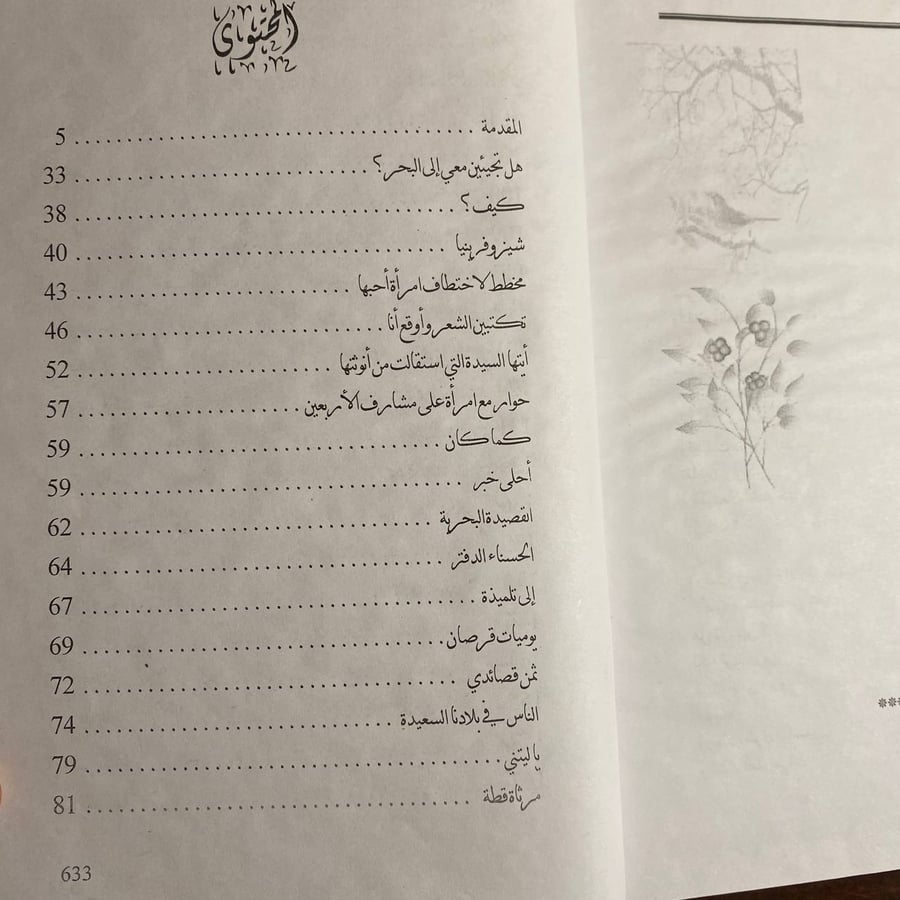 المحتوى
المقدمة ........ 5
هل تجيئين معي إلى البحر؟ ........ 33
كيف؟ ........ 38
شيزوفرينيا ........ 40
مخطط لاختطاف امرأة أحبها ........ 43
تكتبين الشعر وأوقع أنا ........ 46
أيتها السيدة التي استقالت من أنوثتها ........ 52
حوار مع امرأة على مشارف الأربعين ........ 57
كما كان ........ 59
أحلى خبر ........ 59
القصيدة البحرية ........ 62
الحسناء الدفتر ........ 64
إلى تلميذة ........ 67
يوميات قرصان ........ 69
ثمن قصائدي ........ 72
الناس في بلادنا السعيدة ........ 74
يا ليتني ........ 79
مرثاة قطة ........ 81
633